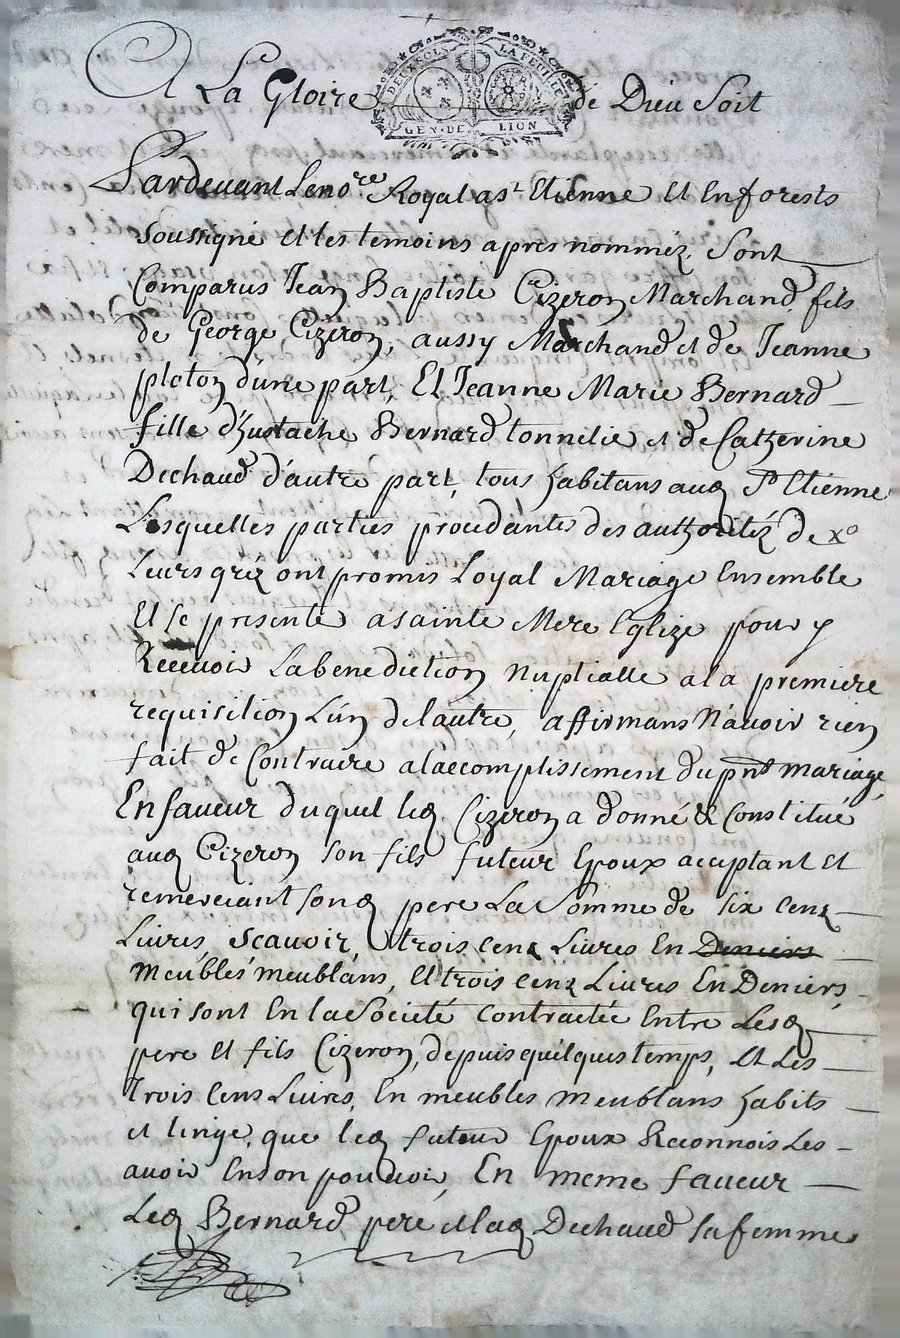 A La Gloire de Dieu Soit
DEUX SOLS LA FEUILLE
GEN·DE LION
Pardevant Le no.re Royal a s.t Etienne et En forests
soussigné et les temoins apres nommez, Sont
Comparus Jean Baptiste Cizeron Marchand, fils
de George Cizeron, aussy Marchand et de Jeanne
pleton d'une part, Et Jeanne Marie Bernard
fille d'Eustache Bernard tonnelie et de Catherine
Dechaud d'autre part, tous habitans aud St Etienne
Lesquelles parties procedante des authoritéz de xo
Leurs grez ont promis Loyal Mariage Ensemble
Et se presente a sainte Mere Eglize pour y
Recevoir La benediction Nuptialle a la premiere
requisition L'un de lautre, affirmans N'avoir rien
fait de Contraire a laccomplissement du pnt mariage,
En faveur duquel led Cizeron a donné & Constitué
aud Cizeron son fils futeur Epoux acceptant et
remerciant sond pere La Somme de six cenz
Livres, scavoir, trois cenz Livres En Deniers
meubles meublans, Et trois cenz Livres En Deniers,
qui sont En la Société contractée Entre Lesd
pere et fils Cizeron, depuis quelques temps, et Les
trois Cens Livres, En meubles meublans habits
et linge, que led futeur Epoux Reconnois Les
avoir En son pouvoir, En meme faveur
Led Bernard pere et lad Dechaud sa femme